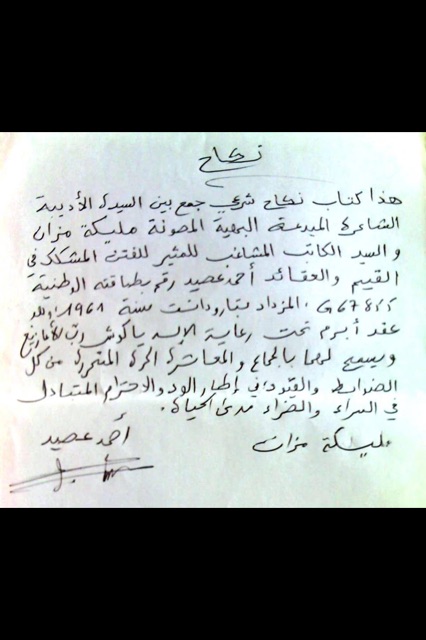 نكاح
هذا كتاب نكاح شرعي جمع بين السيدة الأديبة
الشاعرة المبدعة البهية المصونة مليكة مزان
والسيد الكاتب المشاغب المثير للفتن المشكك في
القيم والعقائد أحمد عصيد رقم بطاقته الوطنية
المزداد بتارودانت سنة 1961
عقد أبرم تحت رعاية الإله ياكوش رب الأمازيغ
ويسمح لهما بالجماع والمعاشرة الحرة المتحررة من كل
الضوابط والقيود في إطار الود والاحترام المتبادل
في السراء والضراء مدى الحياة.
مليكة مزان
أحمد عصيد